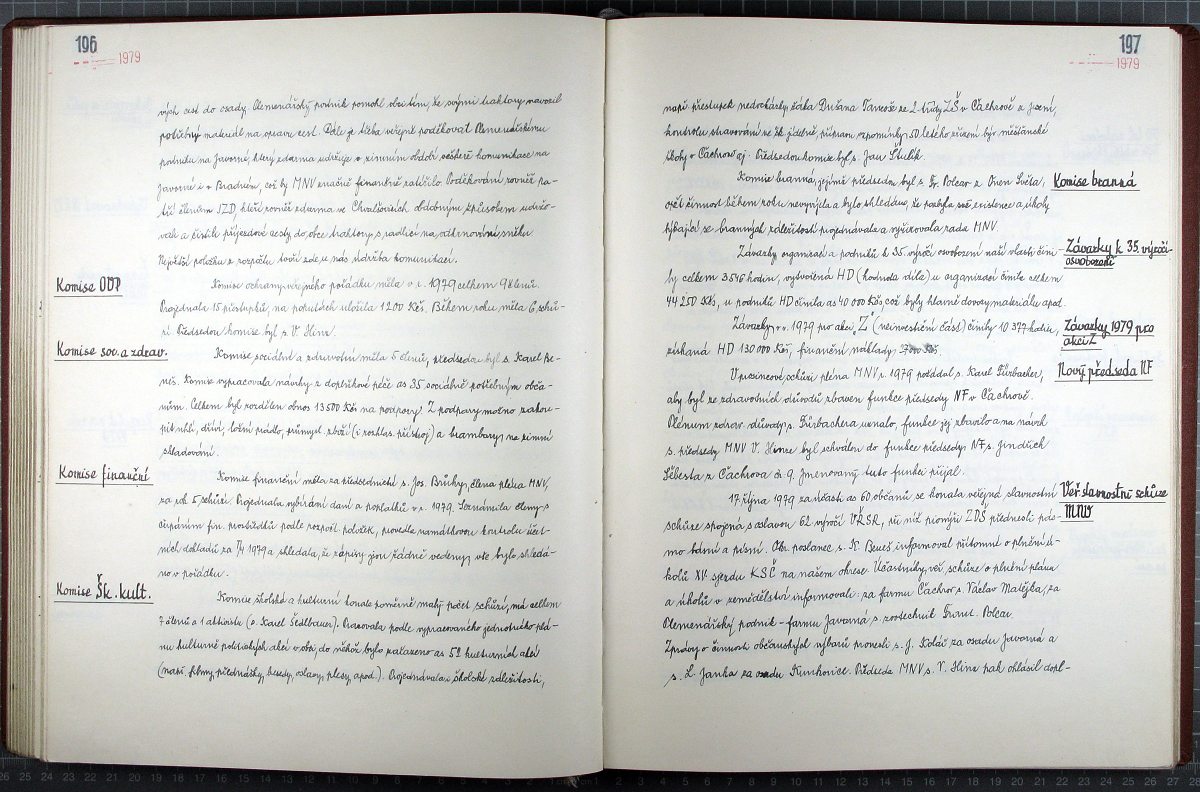 196
1979
vých cest do osady. Plemenářský podnik pomohl obci tím, že svými traktory navozil
potřebný materiál na opravu cest. Dále je třeba veřejně poděkovat Plemenářskému
podniku na Javorné, který zdarma udržuje v zimním období veškeré komunikace na
Javorné i v Bradném, což by MNV značně finančně zatížilo. Poděkování rovněž pa-
tří členům JZD, kteří rovněž zdarma ve Chvalšovicích obdobným způsobem udržo-
vali a čistili příjezdové cesty do obce traktory s radlicí na odhrnování sněhu.
Největší položku z rozpočtu tvoří zde u nás údržba komunikací.
Komise OVP
Komise ochrany veřejného pořádku měla v r. 1979 celkem 9 členů.
Projednala 15 přestupků, na pokutách uložila 1200 Kčs. Během roku měla 6 schů-
zí. Předsedou komise byl s. V. Hinz.
Komise soc. a zdrav.
Komise sociální a zdravotní měla 5 členů, předsedou byl s. Karel Be-
neš. Komise vypracovala návrhy z doplňkové péče as 35 sociálně potřebným obča-
nům. Celkem byl rozdělen obnos 13500 Kčs na podpory. Z podpory možno zakou-
pit uhlí, dříví, ložní prádlo, průmysl. zboží (i rozhlas. přístroj) a brambory na zimní
skladování.
Komise finanční
Komise finanční měla za předsednictví s. Jos. Brůhy, člena pléna MNV,
za rok 5 schůzí. Projednala vybírání daní a poplatků v r. 1979. Seznámila členy s
čerpáním fin. prostředků podle rozpočt. položek, provedla namátkovou kontrolu účet-
ních dokladů za IV/1979 a shledala, že zápisy jsou řádně vedeny, vše bylo shledá-
no v pořádku.
Komise Šk. kult.
Komise školská a kulturní konala poměrně malý počet schůzí, má celkem
7 členů a 1 aktivistu (s. Karel Šedlbauer). Pracovala podle vypracovaného jednotného plá-
nu kulturně politických akcí v obci, do něhož bylo zařazeno as 52 kulturních akcí
(např. filmy, přednášky, besedy, oslavy, plesy, apod.). Projednávala i školské záležitosti,
197
1979
např. přestupek nedocházky žáka Dušana z 2. třídy ZŠ v Čachrově a jiní,
kontrolu stravování ve šk. jídelně, přípravu vzpomínky 50 letého zřízení býv. měšťanské
školy v Čachrově aj. Předsedou komise byl s. Jan Štulík.
Komise branná
Komise branná, jejímž předsedou byl s. Fr. Polcar z Onen Světa,
opět činnost během roku nevyvíjela a bylo shledáno, že pozbyla své existence a úkoly
týkající se branných záležitostí projednávala a vyřizovala rada MNV.
Závazky k 35. výročí
osvobození
Závazky organizací a podniků k 35. výročí osvobození naší vlasti čini-
ly celkem 3546 hodin, vytvořená HD (hodnota díla) u organizací činila celkem
44 250 Kčs, u podniků HD činila as 40 000 Kčs, což byly hlavně dovozy materiálu apod.
Závazky 1979 pro
akci Z
Závazky v r. 1979 pro akci „Z“ (neinvestiční část) činily 10 377 hodin,
získaná HD 130 000 Kčs, finanční náklady Kčs.
Nový předseda NF
V prosincové schůzi pléna MNV r. 1979 požádal s. Karel Fürbacher,
aby byl ze zdravotních důvodů zbaven funkce předsedy NF v Čachrově.
Plénum zdrav. důvody s. Fürbachera uznalo, funkce jej zbavilo a na návrh
s. předsedy MNV V. Hinze byl schválen do funkce předsedy NF s. Jindřich
Šebesta z Čachrova č. 9. Jmenovaný tuto funkci přijal.
Veř. slavnostní schůze
MNV
17. října 1979 za účasti as 60 občanů se konala veřejná slavnostní
schůze spojená s oslavou 62. výročí VŘSR, při níž pionýři ZDŠ přednesli pás-
mo básní a písní. Okr. poslanec s. K. Beneš informoval přítomné o plnění ú-
kolů XV. sjezdu KSČ na našem okrese. Účastníky veř. schůze o plnění plánu
a úkolů v zemědělství informovali: za farmu Čachrov s. Václav Matějka, za
Plemenářský podnik - farmu Javorná s. zootechnik Frant. Polcar.
Zprávy o činnosti občanských výborů provedli s. J. Kolář za osadu Javorná a
s. L. Janka za osadu Kunkovice. Předseda MNV s. V. Hinz pak ohlásil dopl-